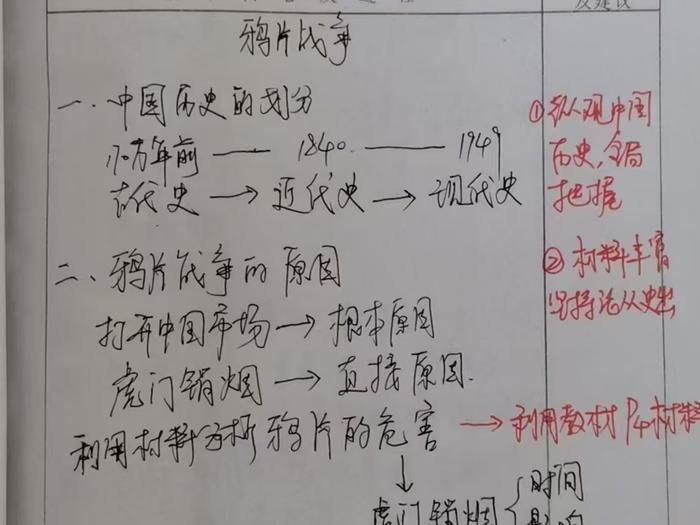 及建议
鸦片战争
一、中国历史的划分
170万年前 —— 1840 —— 1949
古代史 → 近代史 → 现代史
① 纵观中国
历史,全局
把握
二、鸦片战争的原因
打开中国市场 → 根本原因
虎门销烟 → 直接原因.
② 材料丰富
坚持论从史出
利用材料分析鸦片的危害 → 利用教材P4材料
↓
虎门销烟 { 时间
影响